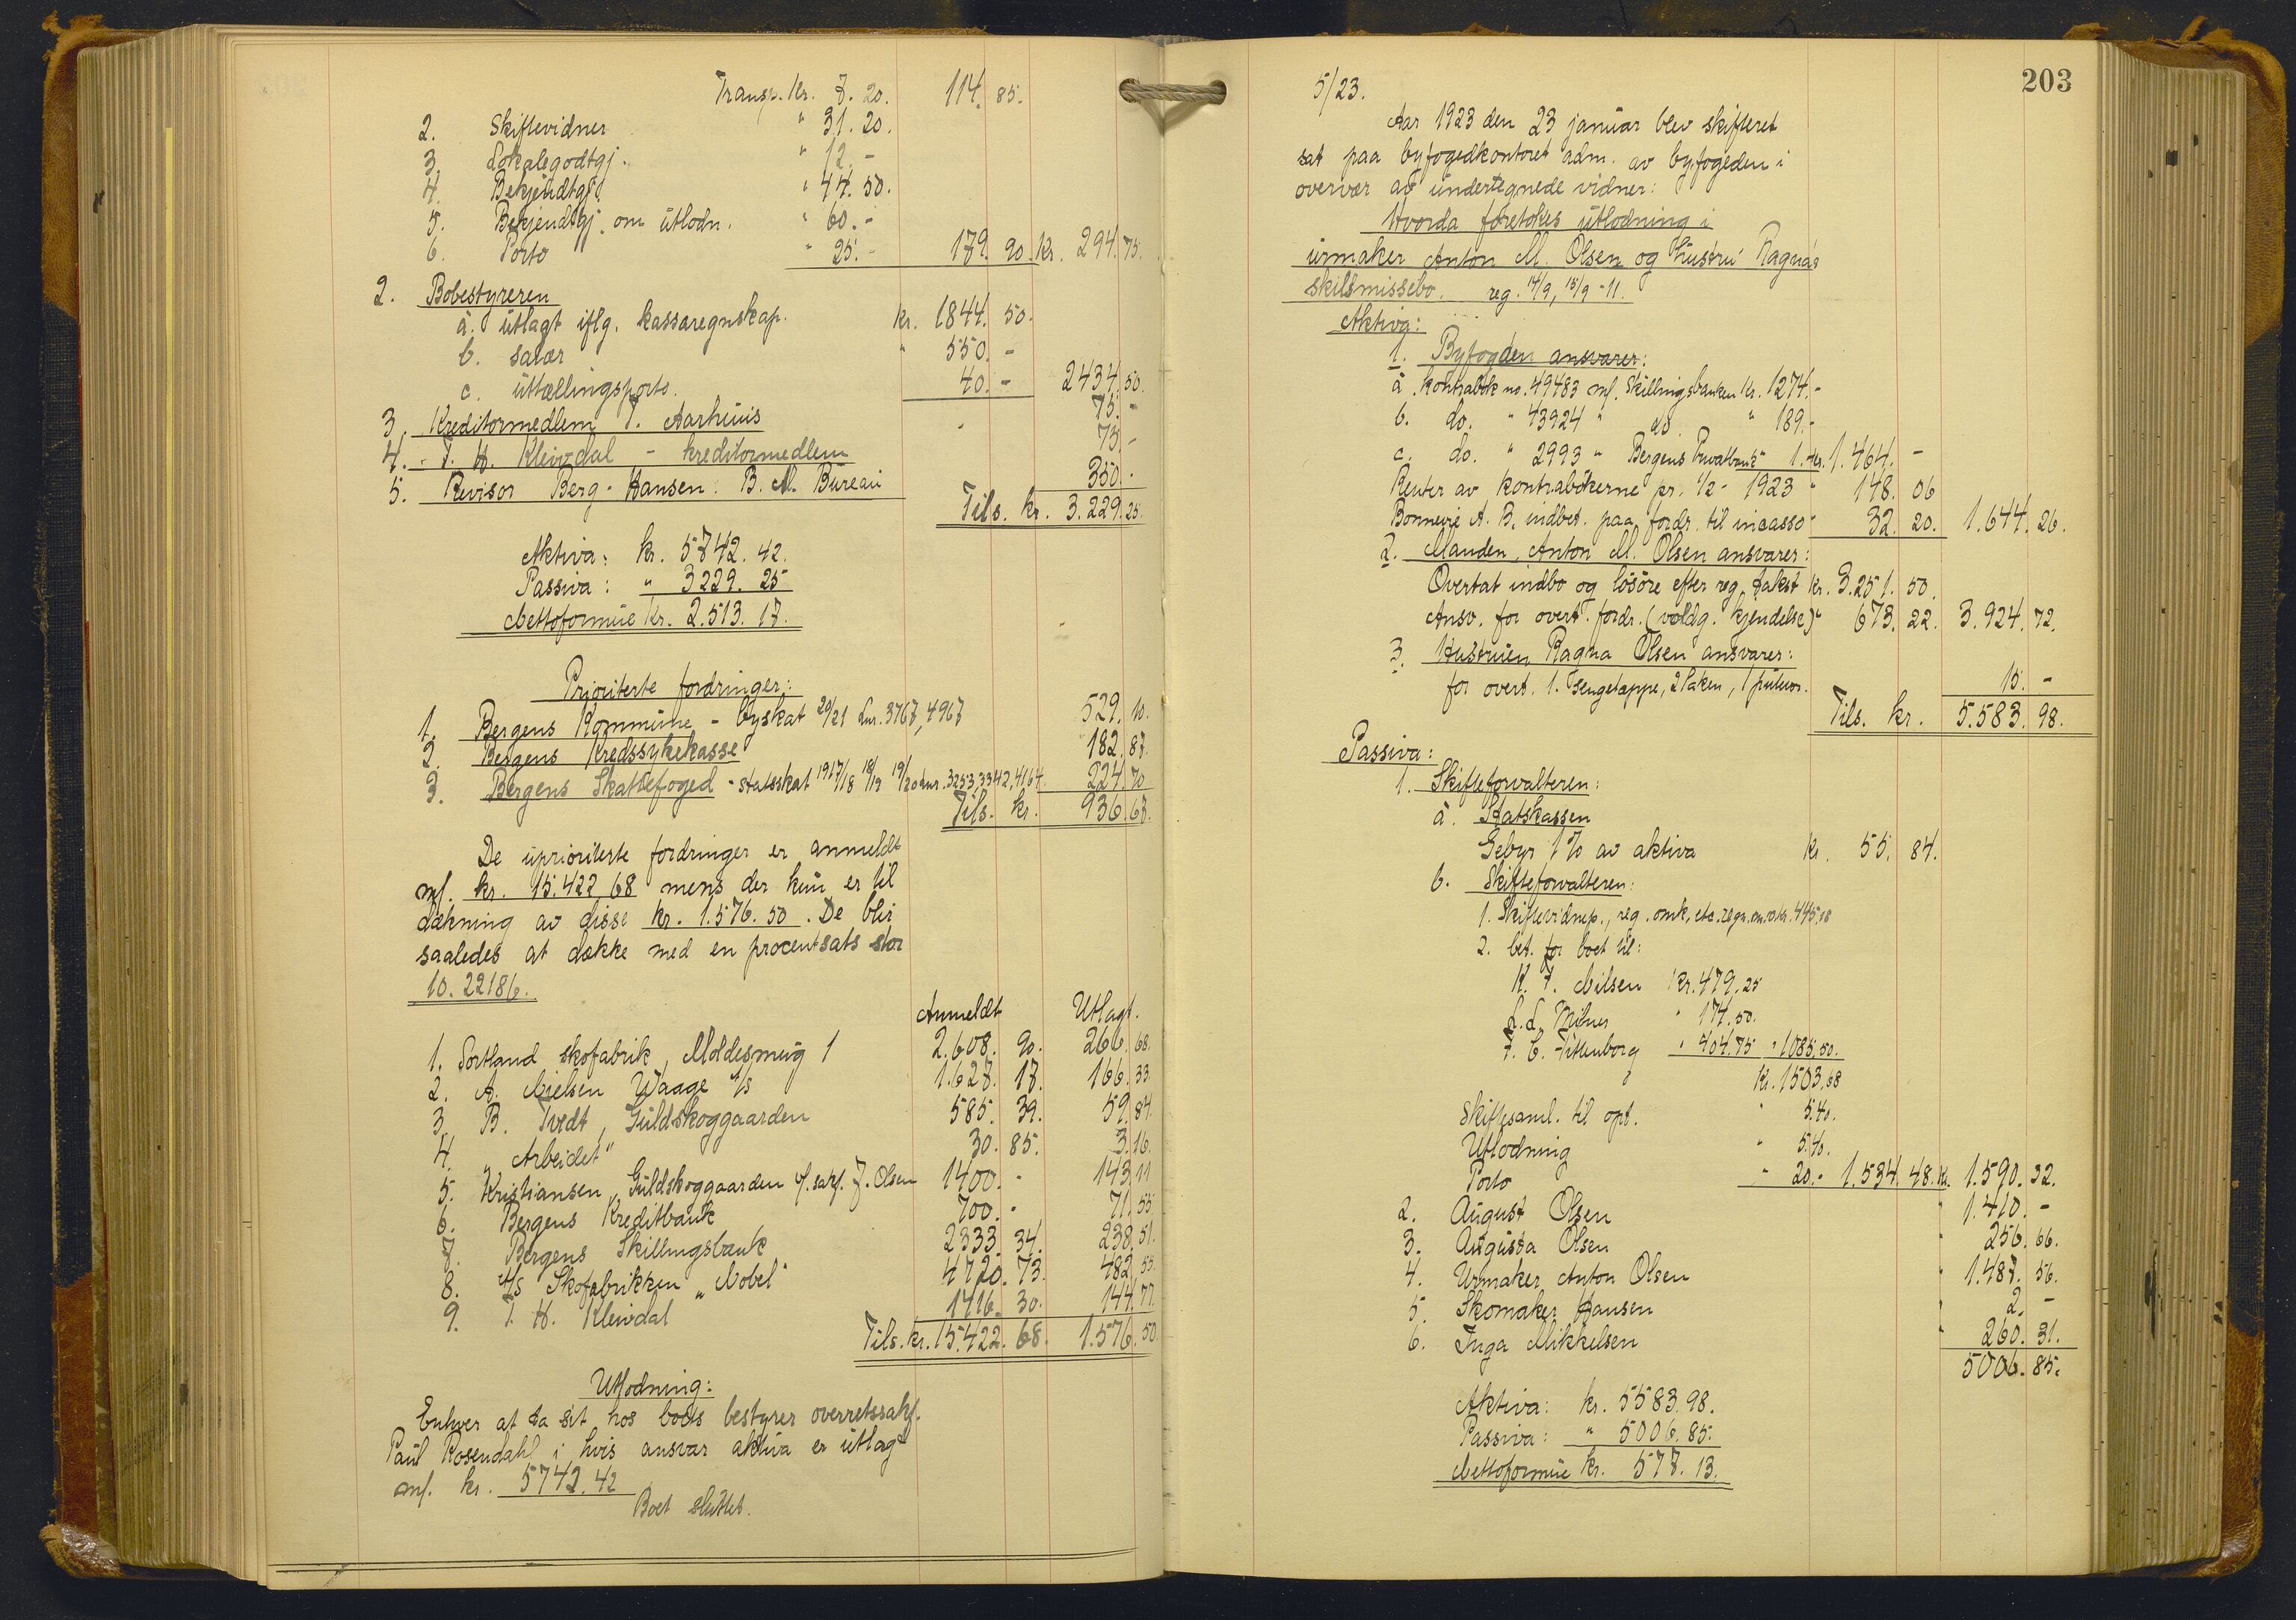 Transp. kr. 7. 20. 114. 85.
2. Skiftevidner " 31. 20.
3. Lokalegodtgj. " 12. -
4. Bekjendtgj. " 44. 50.
5. Bekjendtgj. om utlodn. " 60. -
6. Porto " 25. - 179. 90. kr. 294. 75.
2. Bobestyreren
a. utlagt iflg. kassaregnskap. kr. 1844. 50.
b. salær " 550. -
c. uttællingsporto. 40. - 2434. 50.
3. Kreditormedlem J. Aarhuus 75. -
4. J. H. Kleivdal - kreditormedlem 75. -
5. Revisor Berg-Hansen: B. M. Bureau 350. -
Tils. kr. 3.229. 25.
Aktiva: kr. 5742. 42.
Passiva: " 3229. 25
Nettoformue kr. 2.513. 17.
Prioriterte fordringer:
1. Bergens Kommune - byskat 20/21 Lnr. 3767, 4967 529. 10.
2. Bergens Kredssykekasse 182. 87.
3. Bergens Skattefoged - statsskat 1917/18 18/19 19/20 Lnr. 3253, 3342, 4164 224. 70
Tils. kr. 936. 67.
De uprioriterte fordringer er anmeldt
m/. kr. 15.422 68 mens der kun er til
dækning av disse kr. 1.576. 50. De blir
saaledes at dække med en procentsats stor
10. 22186.
Anmeldt Utlagt.
1. Portland skofabrik, Moldesmug 1 2.608. 90. 266. 68.
2. A. Nielsen Waage A/S 1.627. 17. 166. 33
3. B. Tvedt, Guldskoggaarden 585. 39. 59. 84.
4. "Arbeidet" 30. 85. 3. 16.
5. Kristiansen, Guldskoggaarden v/. sakf. J. Olsen 1400. - 143. 11
6. Bergens Kreditbank 700. - 71. 55
7. Bergens Skillingsbank 2333. 34. 238. 51.
8. A/S Skofabrikken "Nobel" 4720. 73. 482. 55.
9. J. H. Kleivdal 1416. 30. 144. 77
Tils. kr. 15.422. 68. 1.576. 50
Utlodning:
Enhver at ta sit hos boets bestyrer overretssakf.
Paul Rosendahl i hvis ansvar aktiva er utlagt
m/. kr. 5742. 42
Boet sluttet.
203
5/23.
Aar 1923 den 23 januar blev skifteret
sat paa byfogedkontoret adm. av byfogden i
overvær av undertegnede vidner:
Hvorda foretokes utlodning i
urmaker Anton M. Olsen og hustru Ragna's
skilsmissebo. reg. 14/9, 15/9 - 11.
Aktiva:
1. Byfogden ansvarer:
a. kontrabok no. 49483 m/. Skillingsbanken kr. 1274. -
b. do. " 43924 " do. " 189. -
c. do. " 2993 " Bergens Privatbank " 1. - kr. 1.464. -
Renter av kontrabökerne pr. 1/2 - 1923 " 148. 06
Bonnevie A. B. indbet. paa fordr. til incasso " 32. 20. 1.644. 26.
2. Manden, Anton M. Olsen ansvarer:
Overtat indbo og lösöre efter reg. takst kr. 3.251. 50.
Ansv. for overt. fordr. (voldg. kjendelse) " 673. 22. 3.924. 72.
3. Hustruen Ragna Olsen ansvarer:
for overt. 1. Sengetæppe, 2 laken, 1 putevar. 15. -
Tils. kr. 5.583. 98.
Passiva:
1. Skifteforvalteren:
a. Statskassen
Gebyr 1% av aktiva kr. 55. 84.
b. Skifteforvalteren:
1. Skiftevidnep., reg. omk, etc. kr. 445,18
2. bet. for boet til:
K. F. Nilsen kr. 479. 25
L. L. " 174. 50.
F. C. " 404. 75 " 1085. 50.
Kr. 1503. 68
Skiftesaml. til opt. " 5.40.
Utlodning " 5.40.
Porto " 20. - 1.534. 48. kr. 1.590. 32.
2. August Olsen " 1.410. -
3. Augusta Olsen " 256. 66.
4. Urmaker Anton Olsen " 1.487. 56.
5. Skomaker Hansen " 2. -
6. Inga Mikkelsen " 260. 31.
5006. 85.
Aktiva: kr. 5583. 98.
Passiva: " 5006. 85.
Nettoformue kr. 577. 13.